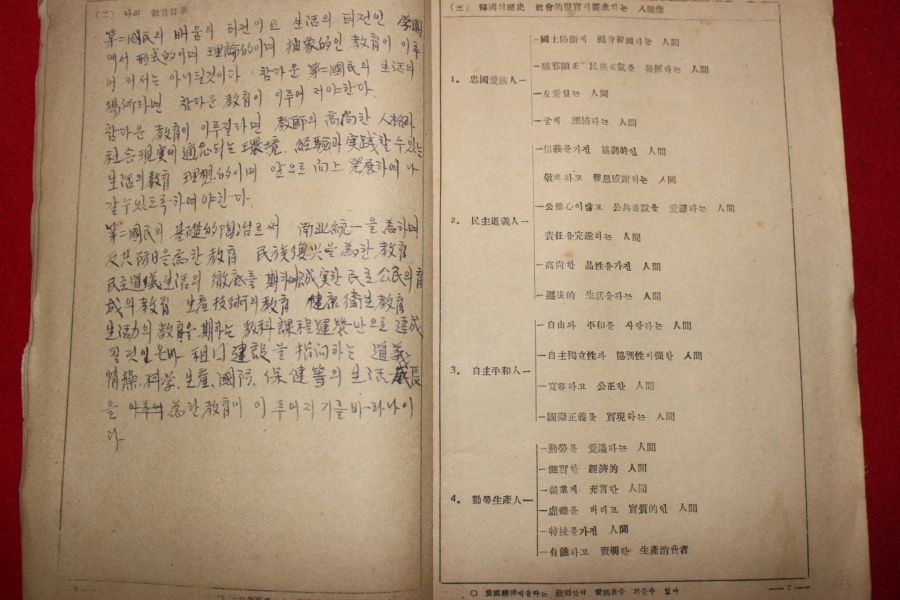 (二) 나의 敎育信條
第二國民의 배움의 터전이요 生活의 터전인 學園
에서 形式的이며 理論的이며 抽象的인 敎育이 이루
어 저서는 아니될것이다. 참다운 第二國民의 生活의
場이라면 참다운 敎育이 이루어 저야한다.
참다운 敎育이 이루질라면 敎師의 高尙한 人格과
社会現実에 適応되는 環境. 経驗과 実践할 수 있는
生活의 敎育 理想的이며 앞으로 向上 発展하여 나
갈수 있도록 하여야 한다.
第二國民의 基礎的 陶冶로써 南北統一을 爲하며
及共防日을 爲한 敎育 民族復兴을 爲한 敎育
民主道義生活의 徹底를 期하며 誠実한 民主公民의 育
成의 敎育 生産技術의 敎育 健康衛生敎育
生活力의 敎育을 期하는 敎科課程運営만으로 達成
될것인은바 祖国建設을 指向하는 道義
情操, 科学, 生産, 國防, 保健等의 生活成長
을 爲한 敎育이 이루어지기를 바라나이
다
(三) 韓國의歷史 社會的現實이要求하는 人間像
1. 忠國愛族人
國土防衛에 挺身報國하는 人間
破邪顯正 民族正氣를 發揮하는 人間
友愛있는 人間
굳게 團結하는 人間
2. 民主道義人
信義를가진 協調的인 人間
敬虔하고 報恩感謝하는 人間
公德心이많고 公共施設을 愛護하는 人間
責任을完遂하는 人間
高尙한 品性을가진 人間
遵法的 生活을하는 人間
3. 自主平和人
自由와 平和를 사랑하는 人間
自主獨立性과 協調性이强한 人間
寬容하고 公正한 人間
國際正義를 實現하는 人間
4. 勤勞生產人
勤勞를 愛護하는 人間
健實한 經濟的 人間
職業에 充實한 人間
虛禮를 버리고 實質的인 人間
特技를가진 人間
有能하고 賢明한 生產消費者
— 7 —
○ 愛國精神에불타는 敎師만이 愛國者를 기를수 있다